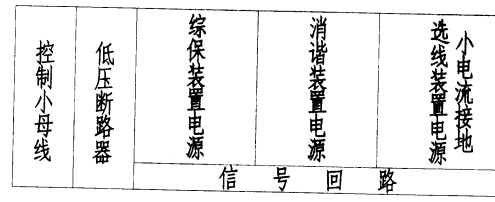 控制小母线
低压断路器
综保装置电源
消谐装置电源
小电流接地
选线装置电源
信号回路